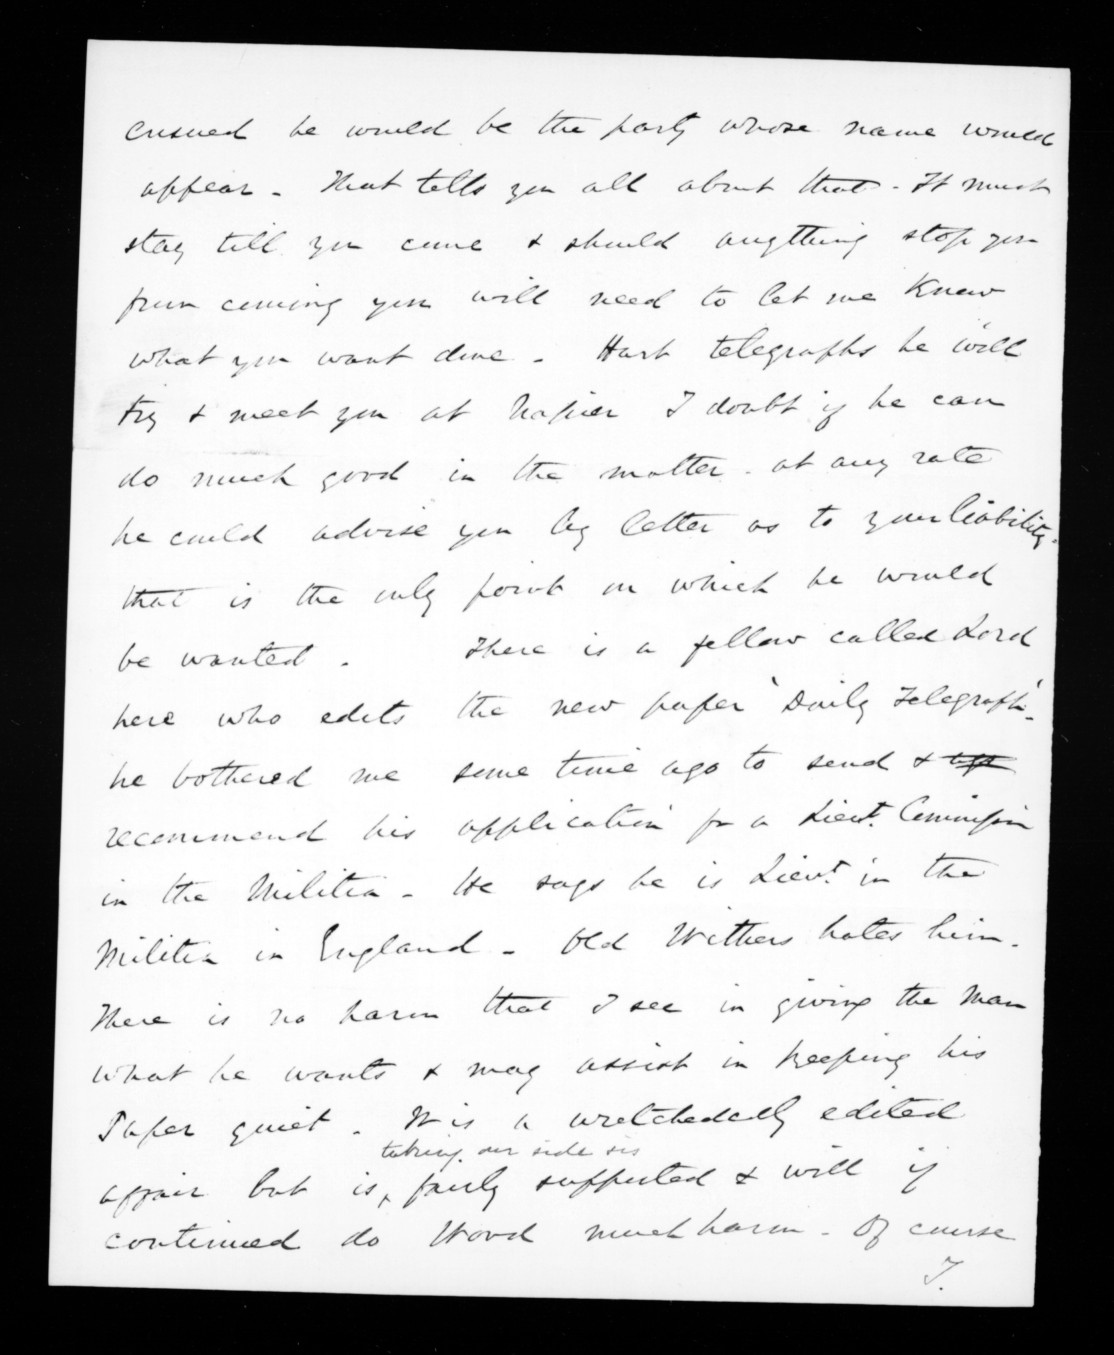 ensued he would be the party whose name would
appear - That tells you all about that - It must
stay till you come & should anything stop you
from coming you will need to let me know
what you want done - Hart telegraphs he will
try & meet you at Napier I doubt if he can
do much good in the matter - at any rate
he could advise you by letter as to your liability -
that is the only point on which he would
be wanted . There is a fellow called Lord
here who edits the new paper 'Daily Telegraph' -
he bothered me some time ago to send &
recommend his application for a Lieut. Commission
in the Militia - He says he is Lieut. in the
Militia in England - Old Withers hates him -
There is no harm that I see in giving the man
what he wants & may assist in keeping his
Paper quiet - It is a wretchedly edited
taking our side
affair but is, fairly supported & will if
continued do Wood much harm - Of course
I.